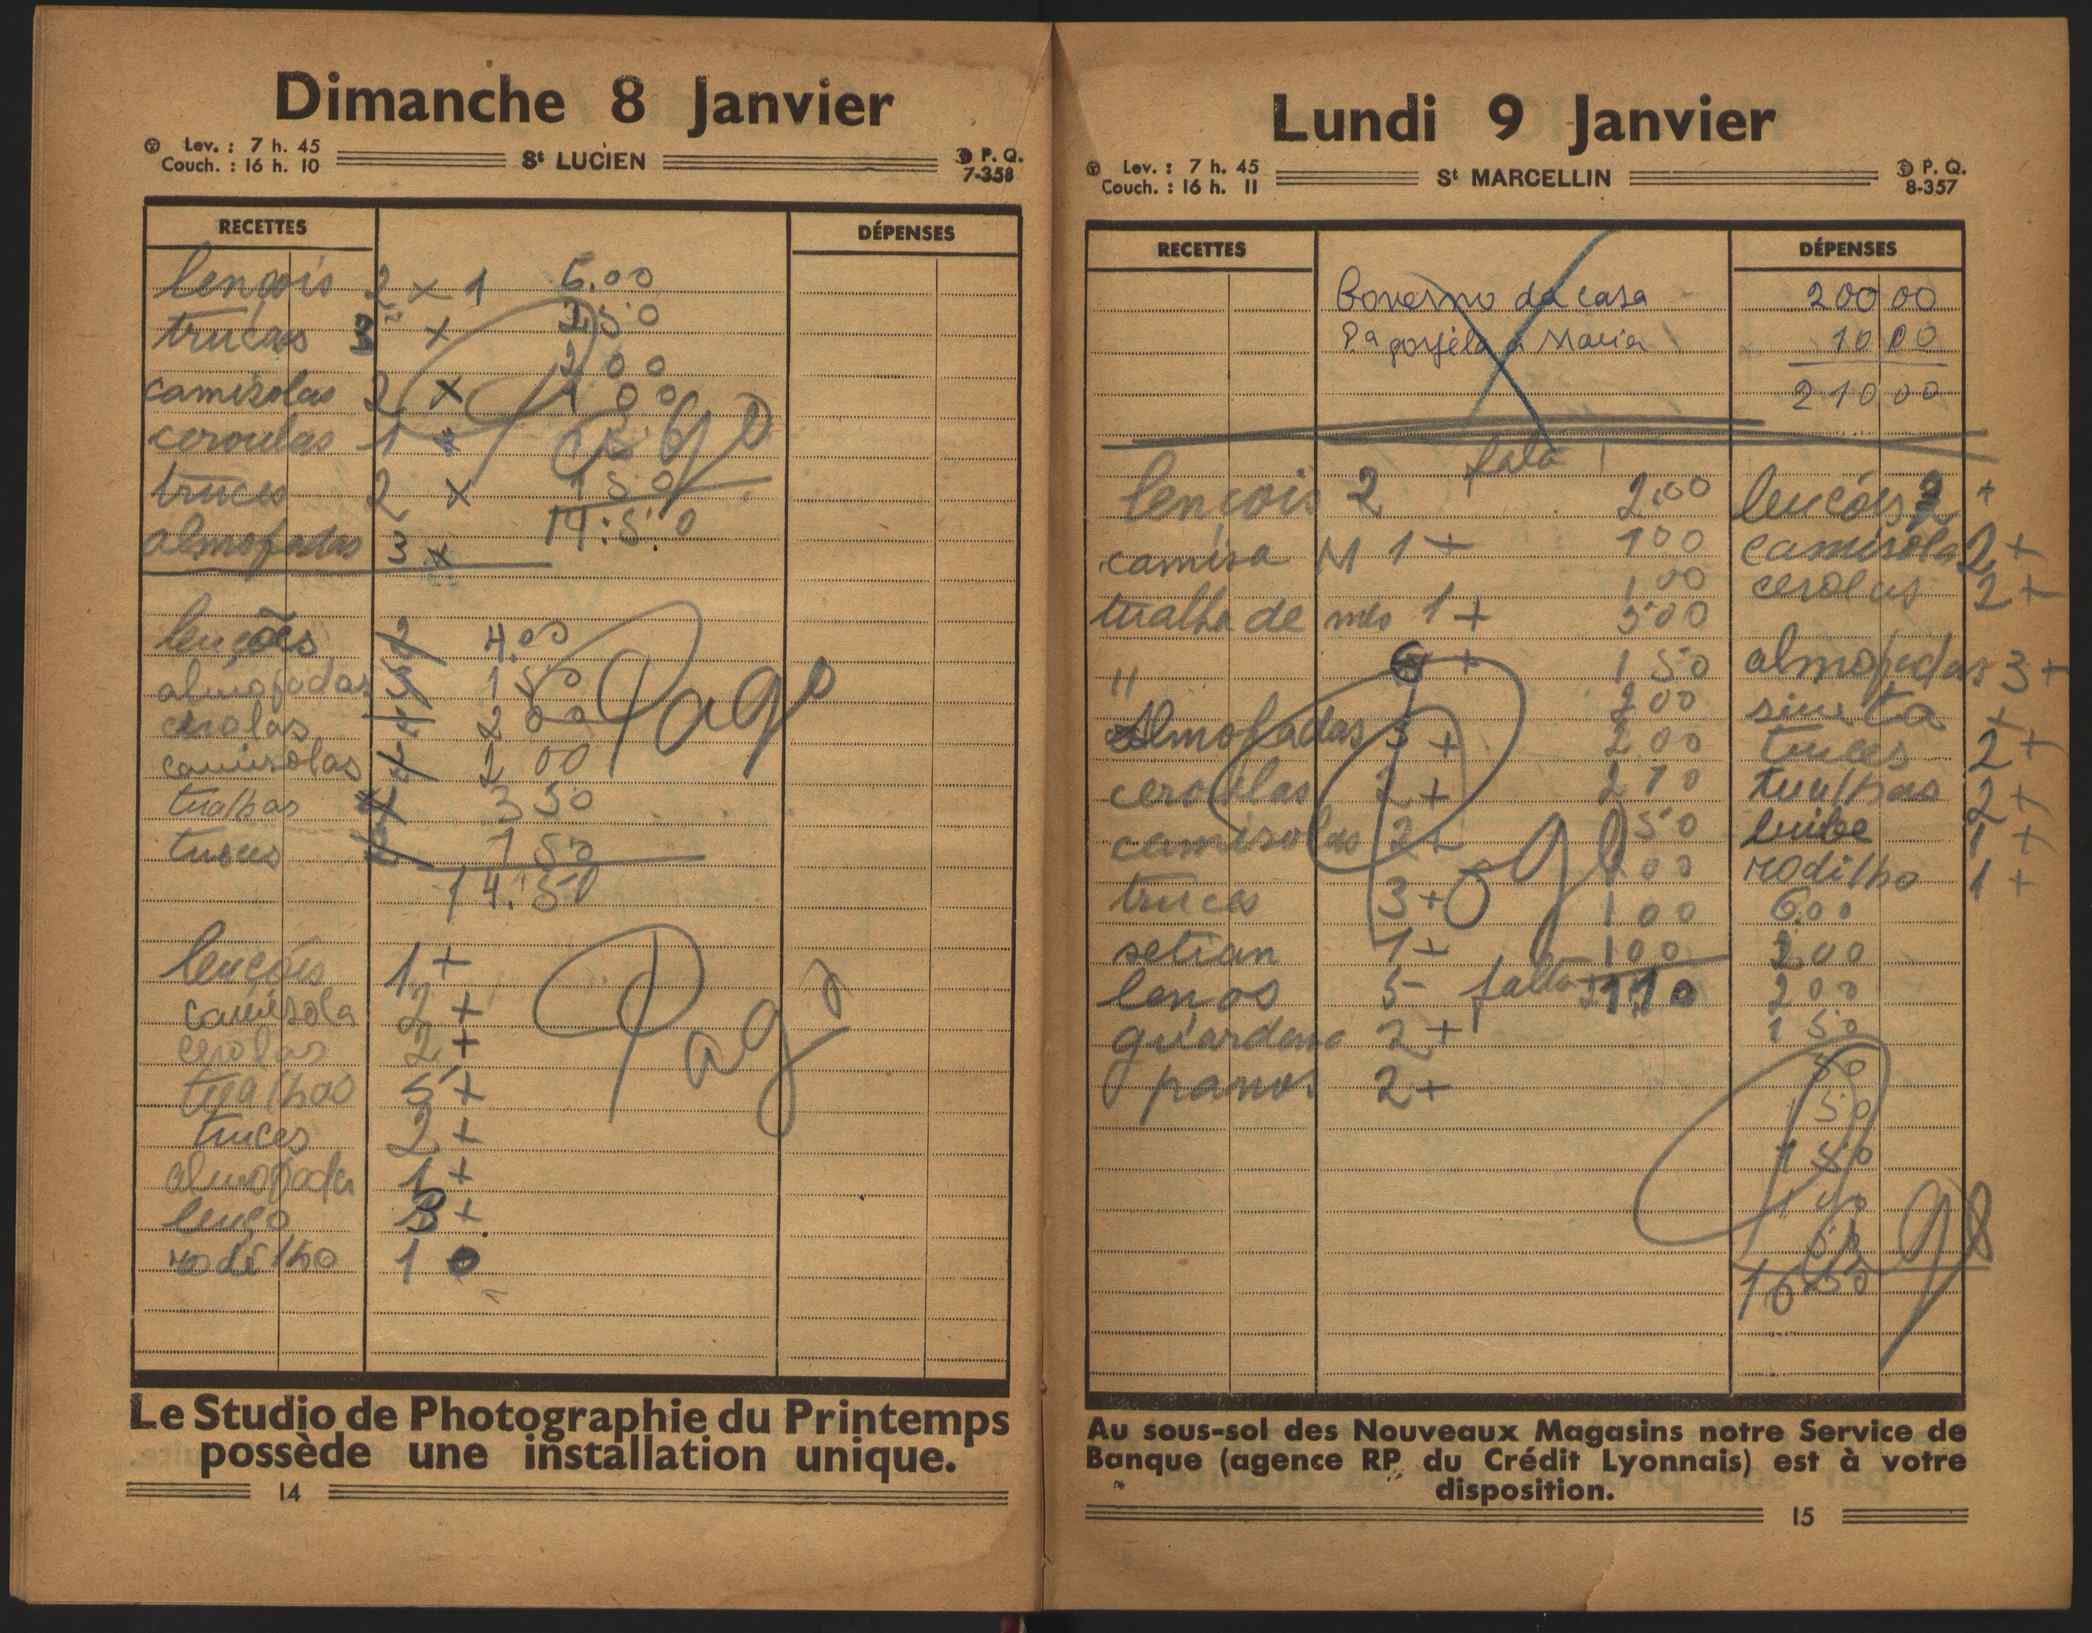 Dimanche 8 Janvier
Lev. : 7 h. 45
Couch. : 16 h. 10
St LUCIEN
P. Q.
7-358
RECETTES
DÉPENSES
lençois 2 x 1 6.00
truces 3 x 3 50
2 00
camisolas 2 x 1 00
ceroulas 1 x
truces 2 x 1 50
14:50
almofadas 3 x
Pago
lenções 2 4.00
almofadas 3 1 50
cerolas 2 00
camisolas 2 00
tualhas 3 50
truces 1 50
14.50
Pago
lençóis 1 +
camisola 2 +
cerolas 2 +
tualhas 5 +
truces 2 +
almofada 1 +
lenço 3 +
rodilho 1
Pago
Le Studio de Photographie du Printemps
possède une installation unique.
14
Lundi 9 Janvier
Lev. : 7 h. 45
Couch. : 16 h. 11
St MARCELLIN
P. Q.
8-357
RECETTES
DÉPENSES
Governo da casa 200 00
a Maria 10 00
210 00
lençois 2 2.00
camisa M 1 + 1 00
1 00
tualha de mês 1 + 5 00
" + 1 50
2 00
Almofadas 3 + 2 00
ceroulas 2 + 2 10
camisolas 2 + 50
truces 3 + 1 00
setian 1 + 1 00
lenços 5 - falta 110
guardana 2 +
panos 2 +
Pago
lençóis 2 +
camisola 2 +
cerolas 2 +
almofadas 3 +
+
truces 2 +
tualhas 2 +
1 +
rodilho 1 +
6.00
2.00
2 00
1 50
50
50
1 50
16 50
Pago
Au sous-sol des Nouveaux Magasins notre Service de
Banque (agence RP du Crédit Lyonnais) est à votre
disposition.
15